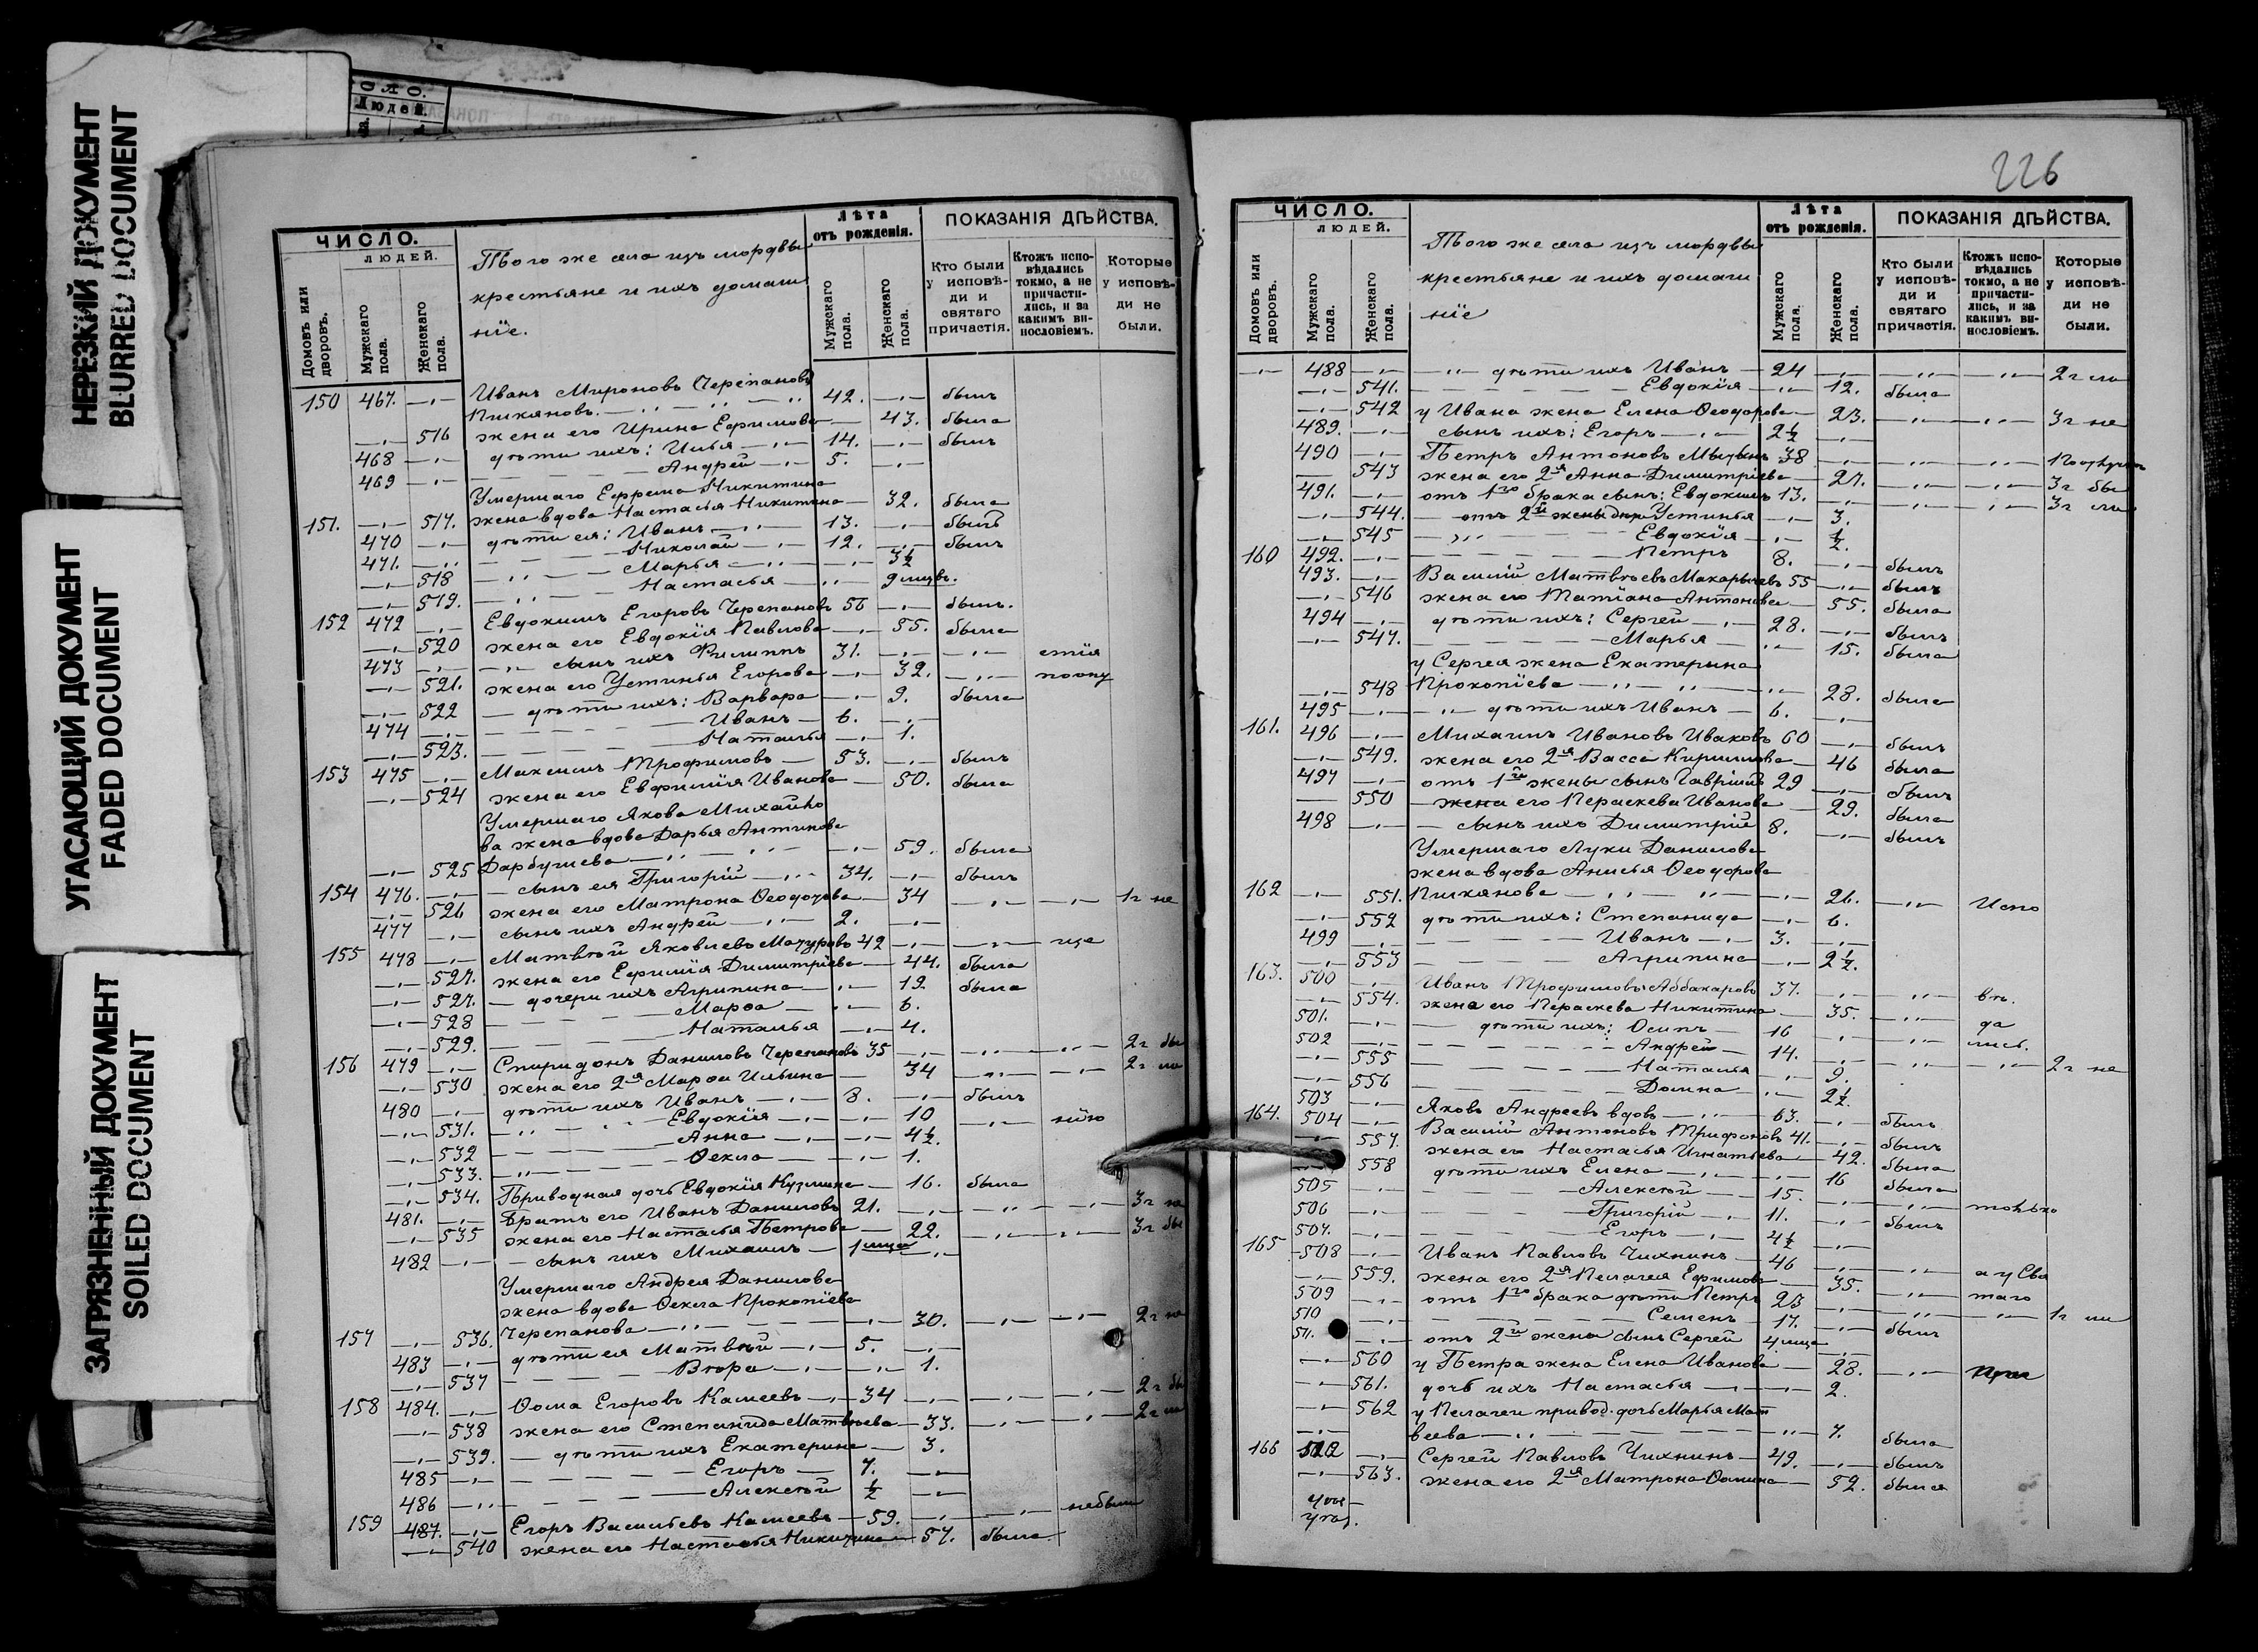 НЕРЕЗКИЙ ДОКУМЕНТ
BLURRED DOCUMENT
УГАСАЮЩИЙ ДОКУМЕНТ
FADED DOCUMENT
ЗАГРЯЗНЕННЫЙ ДОКУМЕНТ
SOILED DOCUMENT
Людей.
ЧИСЛО.
ЛЮДЕЙ.
Домовъ или дворовъ.
Мужскаго пола.
Женскаго пола.
Того же села изъ мордвы
крестьяне и ихъ домаш
нiе.
Лѣта
отъ рожденiя.
Мужскаго пола.
Женскаго пола.
ПОКАЗАНIЯ ДѢЙСТВА.
Кто были у исповѣди и святаго причастiя.
Ктожъ исповѣдались токмо, а не причастились, и за какимъ винословiемъ.
Которые у исповѣди не были.
150 467. Иванъ Мироновъ Черепановъ
Пиксяновъ. 42. былъ
516 жена его Ирина Ефимова 43. была
468 дѣти ихъ: Илья 14. былъ
469 Андрей 5.
Умершаго Ефрема Никитина
151. 517. жена вдова Настасья Никитина 32. была
470 дѣти ея: Иванъ 13. былъ
471. Николай 12. былъ
518 Марья 3½
519. Настасья 9 мцвъ.
152 472 Евдокимъ Егоровъ Черепановъ 56 былъ.
520 жена его Евдокiя Павлова 55. была
473 сынъ ихъ Филиппъ 31. стiя
521. жена его Устинья Егорова 32.
522 дѣти ихъ: Варвара 9. была
474 Иванъ 6.
523. Наталья 1.
153 475 Максимъ Трофимовъ 53. былъ
524 жена его Евфимiя Иванова 50. была
Умершаго Якова Михайло
ва жена вдова Дарья Антипова
525 Дарбушева 59. была
154 476. сынъ ея Григорiй 34. былъ
526 жена его Матрона Ѳеодотова 34 1г не
477 сынъ ихъ Андрей 2.
155 478 Матвѣй Яковлевъ Мачуровъ 42 ще
527. жена его Ефимiя Димитрiева 44. была
527. дочери ихъ Агрипина 12 была
528 Марѳа 6.
529. Наталья 4.
156 479 Спиридонъ Даниловъ Черепановъ 35 2г бы
530 жена его 2я Марѳа Ильина 34 2г ла
480 дѣти ихъ Иванъ 8. былъ
531. Евдокiя 10 нiю
532 Анна 4½.
533. Ѳекла 1.
534. Приводная дочь Евдокiя Кузмина 16. была
481. Братъ его Иванъ Даниловъ 21.
535 жена его Настасья Петрова 22. 3г бы
482 сынъ ихъ Михаилъ 1 мца
Умершаго Андрея Данилова
жена вдова Ѳекла Прокопiева
157 536. Черепанова 30.
483 дѣти ея Матвѣй 5.
537 Вѣра 1.
158 484. Ѳома Егоровъ Камеевъ 34 2г бы
538 жена его Степанида Матвѣева 33.
539. дѣти ихъ Екатерина 3.
485 Егоръ 7.
486 Алексѣй ½
159 487. Егоръ Васильевъ Камеевъ 59. небыли
540 жена его Настасья Никитина 57. была
226
ЧИСЛО.
ЛЮДЕЙ.
Домовъ или дворовъ.
Мужскаго пола.
Женскаго пола.
Того же села изъ мордвы
крестьяне и ихъ домаш
нiе
Лѣта
отъ рожденiя.
Мужскаго пола.
Женскаго пола.
ПОКАЗАНIЯ ДѢЙСТВА.
Кто были у исповѣди и святаго причастiя.
Ктожъ исповѣдались токмо, а не причастились, и за какимъ винословiемъ.
Которые у исповѣди не были.
488 дѣти ихъ Иванъ 24 2г ли
541. Евдокiя 12. была
542 у Ивана жена Елена Ѳеодорова 23. 3г не
489. сынъ ихъ: Егоръ 2½
490 Петръ Антоновъ 38
543 жена его 2я Анна Димитрiева 27. 3г бы
491. отъ 1го брака сынъ: Евдокимъ 13. 3г ли
544. отъ 2й жены Устинья 3.
545 Евдокiя ½.
160 492. Петръ 8. былъ
493. Василiй Матвѣевъ Макарычевъ 55 былъ
546 жена его Татiана Антонова 55. была
494 дѣти ихъ: Сергей 28. былъ
547. Марья 15. была
у Сергея жена Екатерина
548 Прокопiева 28. была
495 дѣти ихъ Иванъ 6.
161. 496 Михаилъ Ивановъ Иваковъ 60 былъ
549. жена его 2я Васса Кирилова 46 была
497 отъ 1й жены сынъ Гаврiилъ 29 былъ
550 жена его Пераскева Иванова 29. была
498 сынъ ихъ Димитрiй 8. былъ
Умершаго Луки Данилова
жена вдова Анисья Ѳеодорова
162 551. Пиксянова 26. Испо
552 дѣти ихъ: Степанида 6.
499 Иванъ 3.
553 Агрипина 2½.
163. 500 Иванъ Трофимовъ Аббакаровъ 37. вѣ.
554. жена его Пераскева Никитина 35. да
501. дѣти ихъ: Осипъ 16 лись.
502 Андрей 14. 2г не
555 Наталья 9.
556 Домна 2½.
503 Яковъ Андреевъ вдовъ 63. былъ
164. 504 Василiй Антоновъ Трифоновъ 41. былъ
557. жена его Настасья Игнатьева 42. была
558 дѣти ихъ Елена 16 была
505 Алексѣй 15. только
506 Григорiй 11. былъ
507. Егоръ 4½
165 508 Иванъ Павловъ Чихнинъ 46 а у Свя
559. жена его 2я Пелагея Ефимова 35. таго
509 отъ 1го брака дѣти Петръ 23
510 Семенъ 17. былъ
511. отъ 2й жены сынъ Сергей 4 мца
560 у Петра жена Елена Иванова 28.
561. дочь ихъ Настасья 2.
562 у Пелагеи привод. дочь Марья Мат
веева 7. была
166 512 Сергей Павловъ Чихнинъ 49. былъ
563. жена его 2я Матрона Ѳомина 52. была